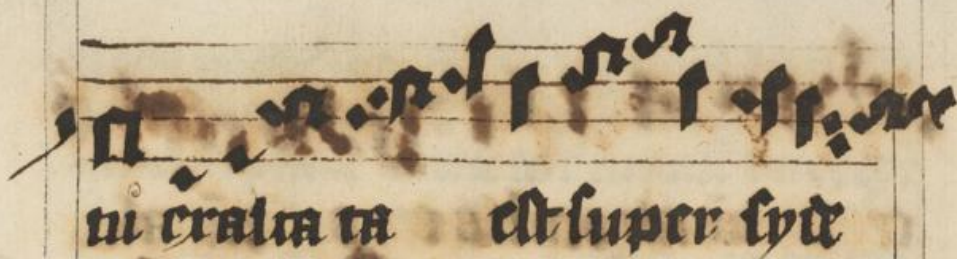 tu exalta ta est super syde